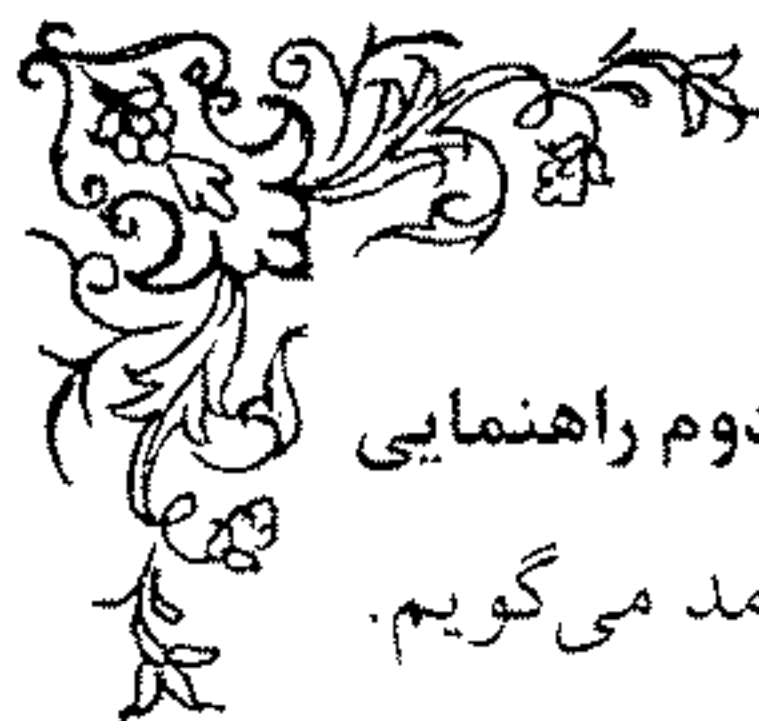 دوم راهنمایی
می‌گویم.